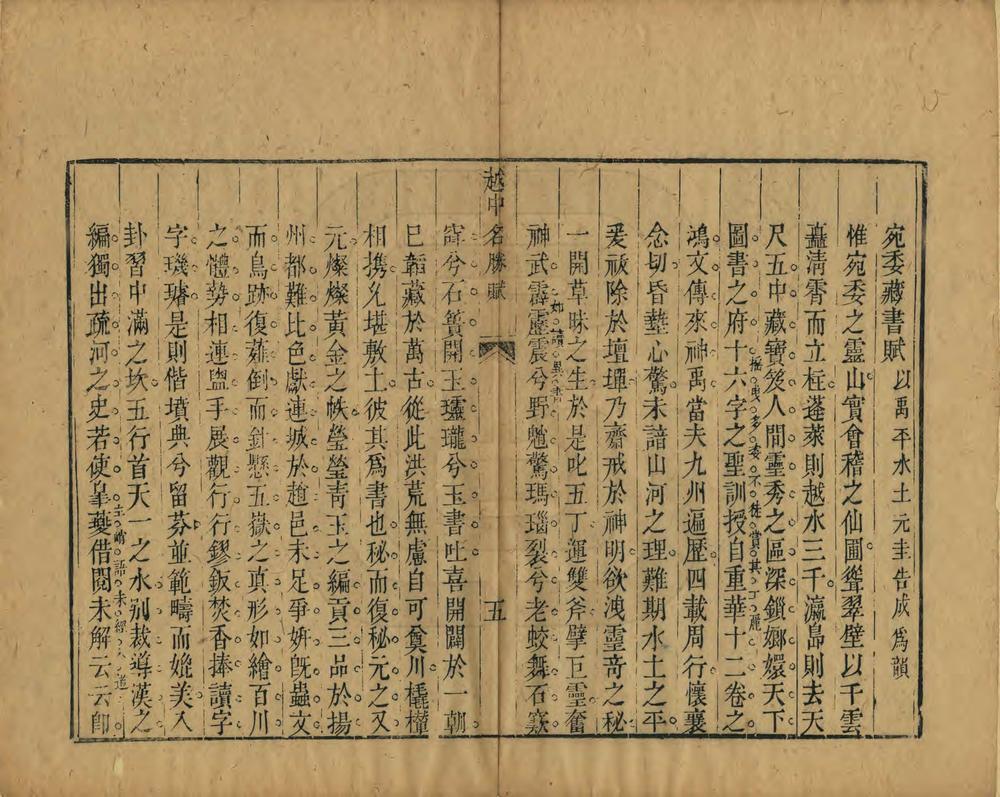 宛委藏書賦以禹平水土元圭告成爲韻
惟宛委之靈山實會稽之仙圃聳翠壁以千雲
矗清霄而立柱蓬萊則越水三千瀛島則去天
尺五中藏寶笈人間靈秀之區深鎖嫏嬛天下
圖書之府十六字之聖訓授自重華十二卷之
搖曳多姿不徒賞其工麗
鴻文傳來神禹當夫九州遍歷四載周行懷襄
念切昏墊心驚未諳山河之理難期水土之平
爰祓除於壇墠乃齋戒於神明欲洩靈奇之秘
一開草昧之生於是叱五丁運雙斧擘巨靈奮
如讀異書
神武霹靂震兮野魈驚瑪瑙裂兮老蛟舞石竅
越中名勝賦
五
穿兮石簣開玉瓏兮玉書吐喜開闢於一朝
已韜藏於萬古從此洪荒無慮自可奠川橇欙
相携允堪敷土彼其爲書也秘而復秘元之又
元燦燦黃金之帙瑩瑩青玉之編貢三品於揚
州都難比色獻連城於趙邑未足爭妍旣蟲文
而鳥跡復薤倒而針懸五嶽之真形如繪百川
之體勢相連盥手展觀行行鏐鈑焚香捧讀字
字璣璿是則偕墳典兮留芬並範疇而媲美入
卦習中滿之坎五行首天一之水别裁導漢之
主峭語未經人道
編獨出疏河之史若使皋夔借閱未解云云卽